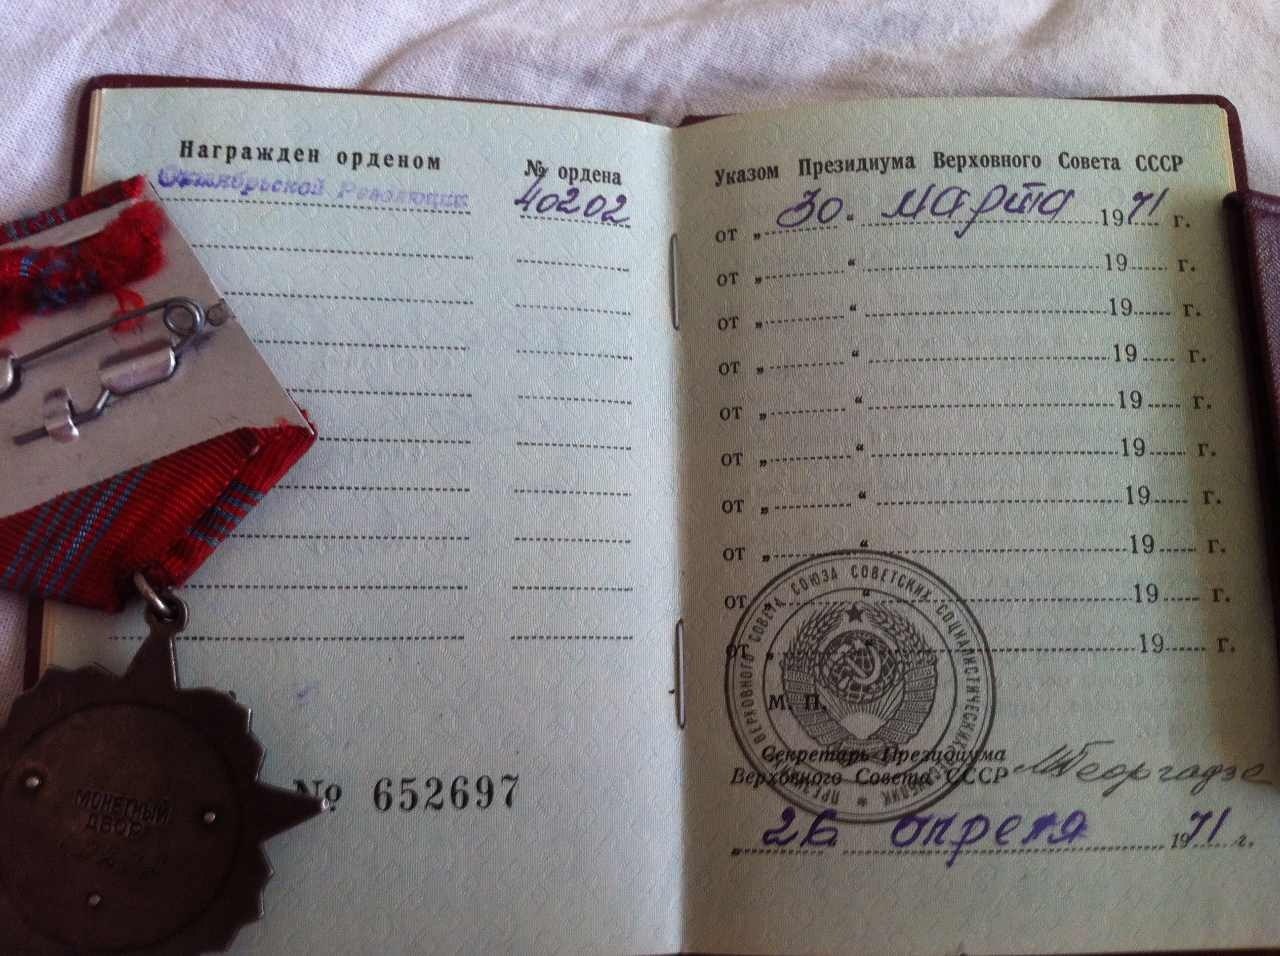 Награжден орденом
№ ордена
Октябрьской Революции
40202
№ 652697
МОНЕТНЫЙ
ДВОР
Указом Президиума Верховного Совета СССР
от „ 30 “ марта 1971 г.
от „ “ 19 г.
от „ “ 19 г.
от „ “ 19 г.
от „ “ 19 г.
от „ “ 19 г.
от „ “ 19 г.
от „ “ 19 г.
от „ “ 19 г.
от „ “ 19 г.
ВЕРХОВНОГО СОВЕТА СОЮЗА СОВЕТСКИХ СОЦИАЛИСТИЧЕСКИХ
М. П.
Секретарь Президиума
Верховного Совета СССР
М Георгадзе
„ 26 “ апреля 1971 г.